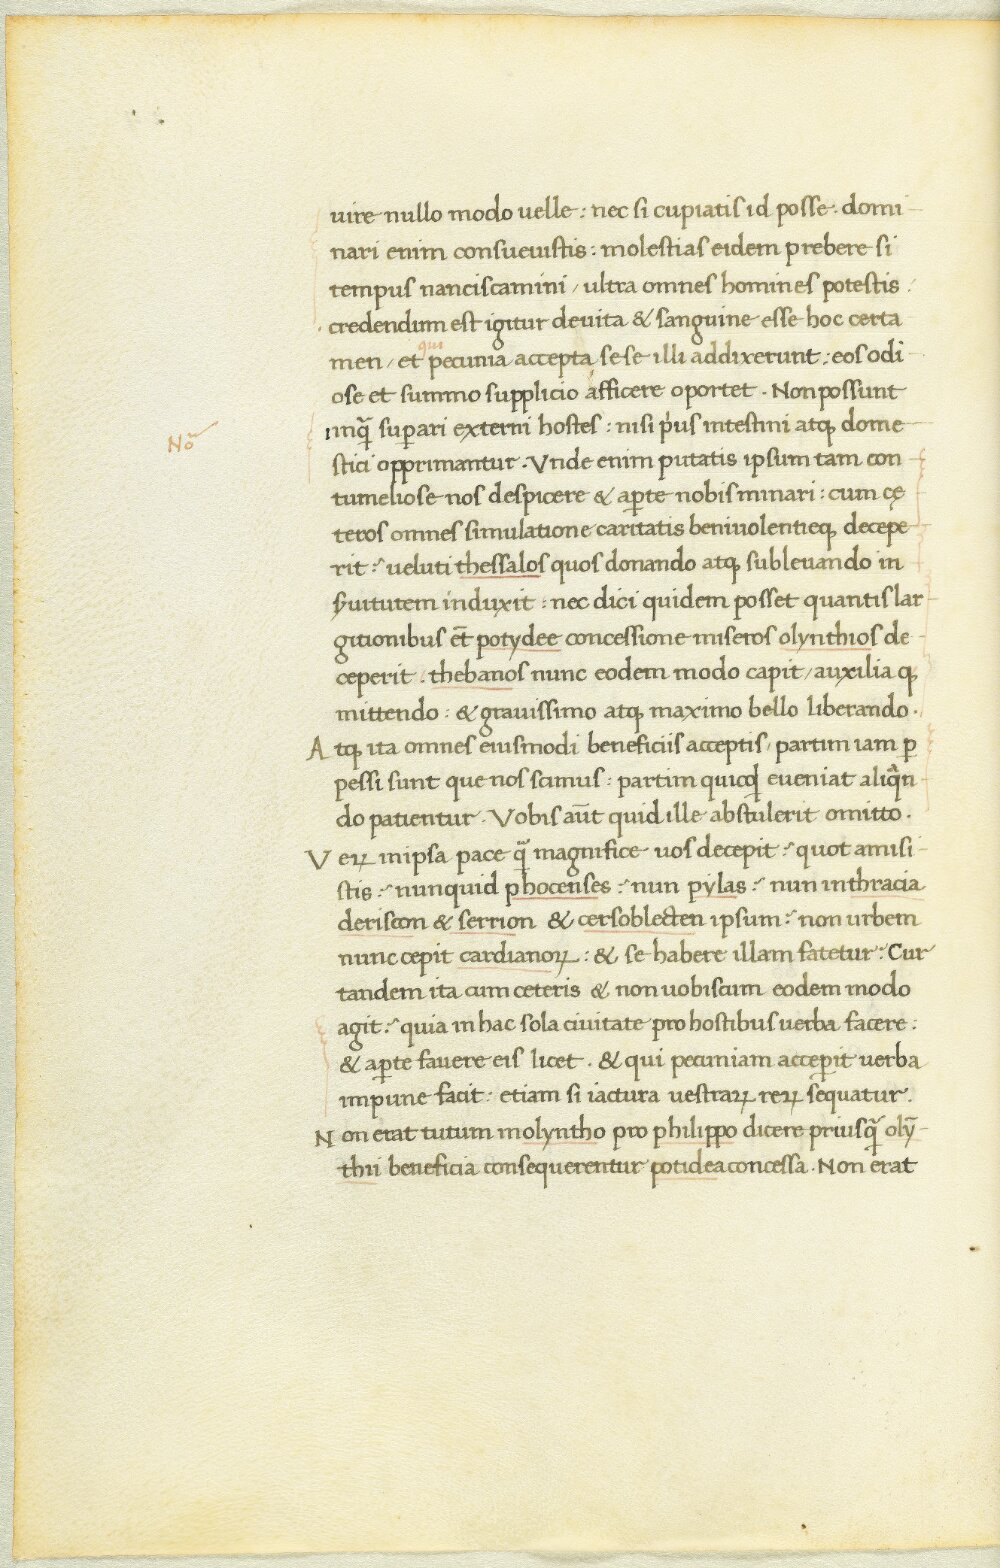 uire nullo modo uelle : nec si cupiatis id posse . domi
nari enim consueuistis : molestias eidem prebere si
tempus nanciscamini / ultra omnes homines potestis :
credendum est igitur de uita & sanguine esse hoc certa
qui
men / et pecunia accepta sese illi addixerunt : eos odi
ose et summo supplicio afficere oportet . Non possunt
Nõ
unq̃ suꝑari externi hostes : nisi pꝰus intestini atq; dome
stici opprimantur . Vnde enim putatis ipsum tam con
tumeliose nos despicere & aꝑte nobis minari : cum cę
teros omnes simulatione caritatis beniuolentieq; decepe
rit : ueluti thessalos quos donando atq; subleuando in
s̃uitutem induxit : nec dici quidem posset quantis lar
gitionibus et̃ potydee concessione miseros olynthios de
ceperit . thebanos nunc eodem modo capit / auxilia q;
mittendo : & grauissimo atq; maximo bello liberando .
Atq; ita omnes eiusmodi beneficiis acceptis / partim iam ꝑ
pessi sunt que nos scimus : partim quicqd eueniat aliq̃n
do patientur . Vobis aũt quid ille abstulerit omitto .
Veꝝ in ipsa pace q̃ magnifice uos decepit : quot amisi
stis : nunquid phocenses : nun pylas : nun in thracia
deriscon & serrion & cersoblecten ipsum : non urbem
nunc cepit cardianoꝝ : & se habere illam fatetur : Cur
tandem ita cum ceteris & non uobiscum eodem modo
agit : quia in hac sola ciuitate pro hostibus uerba facere :
& aꝑte fauere eis licet . & qui pecuniam acceperit uerba
impune facit : etiam si iactura uestraꝝ reꝝ sequatur .
Non erat tutum in olyntho pro philippo dicere priusq̃ olỹ
thii beneficia consequerentur potidea concessa . Non erat